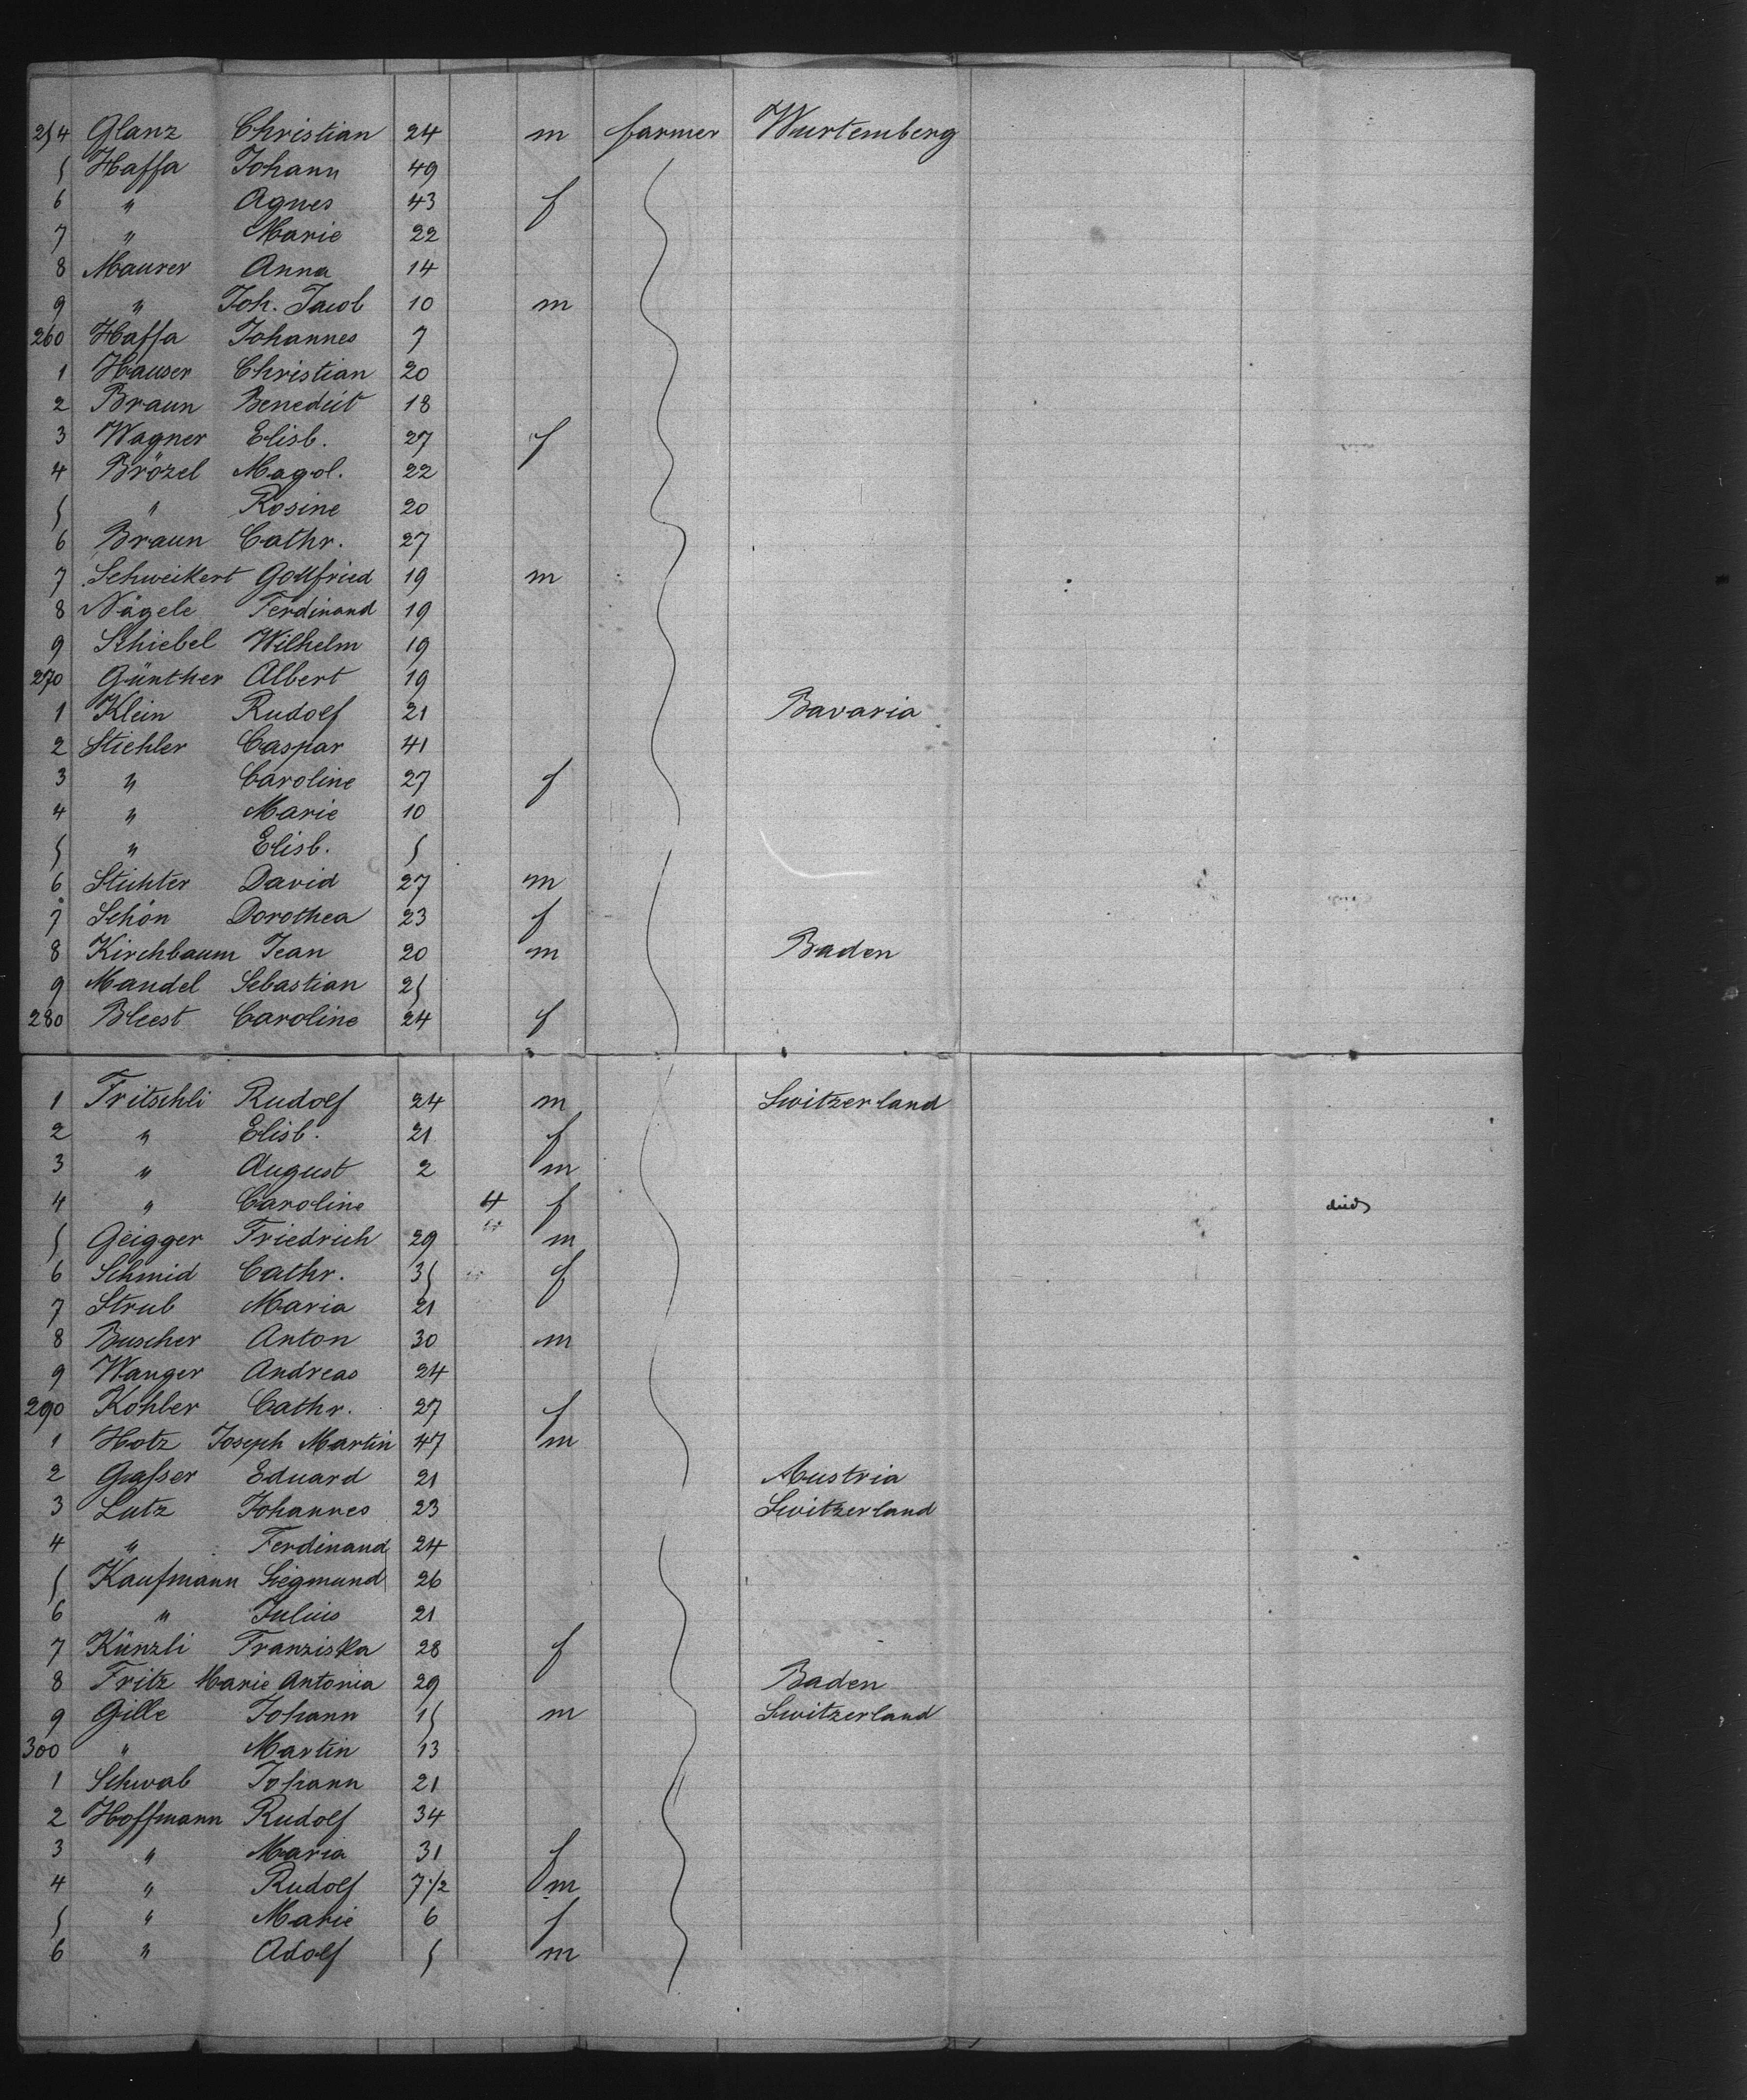 254 Glanz Christian 24 m farmer Wurtemberg
5 Haffa Johann 49
6 " Agnes 43 f
7 " Marie 22
8 Maurer Anna 14
9 " Joh. Jacob 10 m
260 Haffa Johannes 7
1 Hauser Christian 20
2 Braun Benedict 18
3 Wagner Elisb. 27 f
4 Brözel Magd. 22
5 " Rosine 20
6 Braun Cathr. 27
7 Schweikert Gottfried 19 m
8 Nägele Ferdinand 19
9 Schiebel Wilhelm 19
270 Günther Albert 19
1 Klein Rudolf 21 Bavaria
2 Stichler Caspar 41
3 " Caroline 27 f
4 " Marie 10
5 " Elisb. 5
6 Stichter David 27 m
7 Schön Dorothea 23 f
8 Kirchbaum Jean 20 m Baden
9 Mandel Sebastian 25
280 Bleest Caroline 24 f
1 Fritschli Rudolf 24 m Switzerland
2 " Elisb. 21 f
3 " August 2 m
4 " Caroline 4 f died
5 Geigger Friedrich 29 m
6 Schmid Cathr. 35 f
7 Strub Maria 21
8 Buscher Anton 30 m
9 Wanger Andreas 24
290 Kohler Cathr. 27 f
1 Hotz Joseph Martin 47 m
2 Gaßer Eduard 21 Austria
3 Lutz Johannes 23 Switzerland
4 " Ferdinand 24
5 Kaufmann Siegmund 26
6 " Julius 21
7 Künzli Franziska 28 f
8 Fritz Marie Antonia 29 Baden
9 Gille Johann 15 m Switzerland
300 " Martin 13
1 Schwab Johann 21
2 Hoffmann Rudolf 34
3 " Maria 31 f
4 " Rudolf 7 1/2 m
5 " Marie 6 f
6 " Adolf 5 m